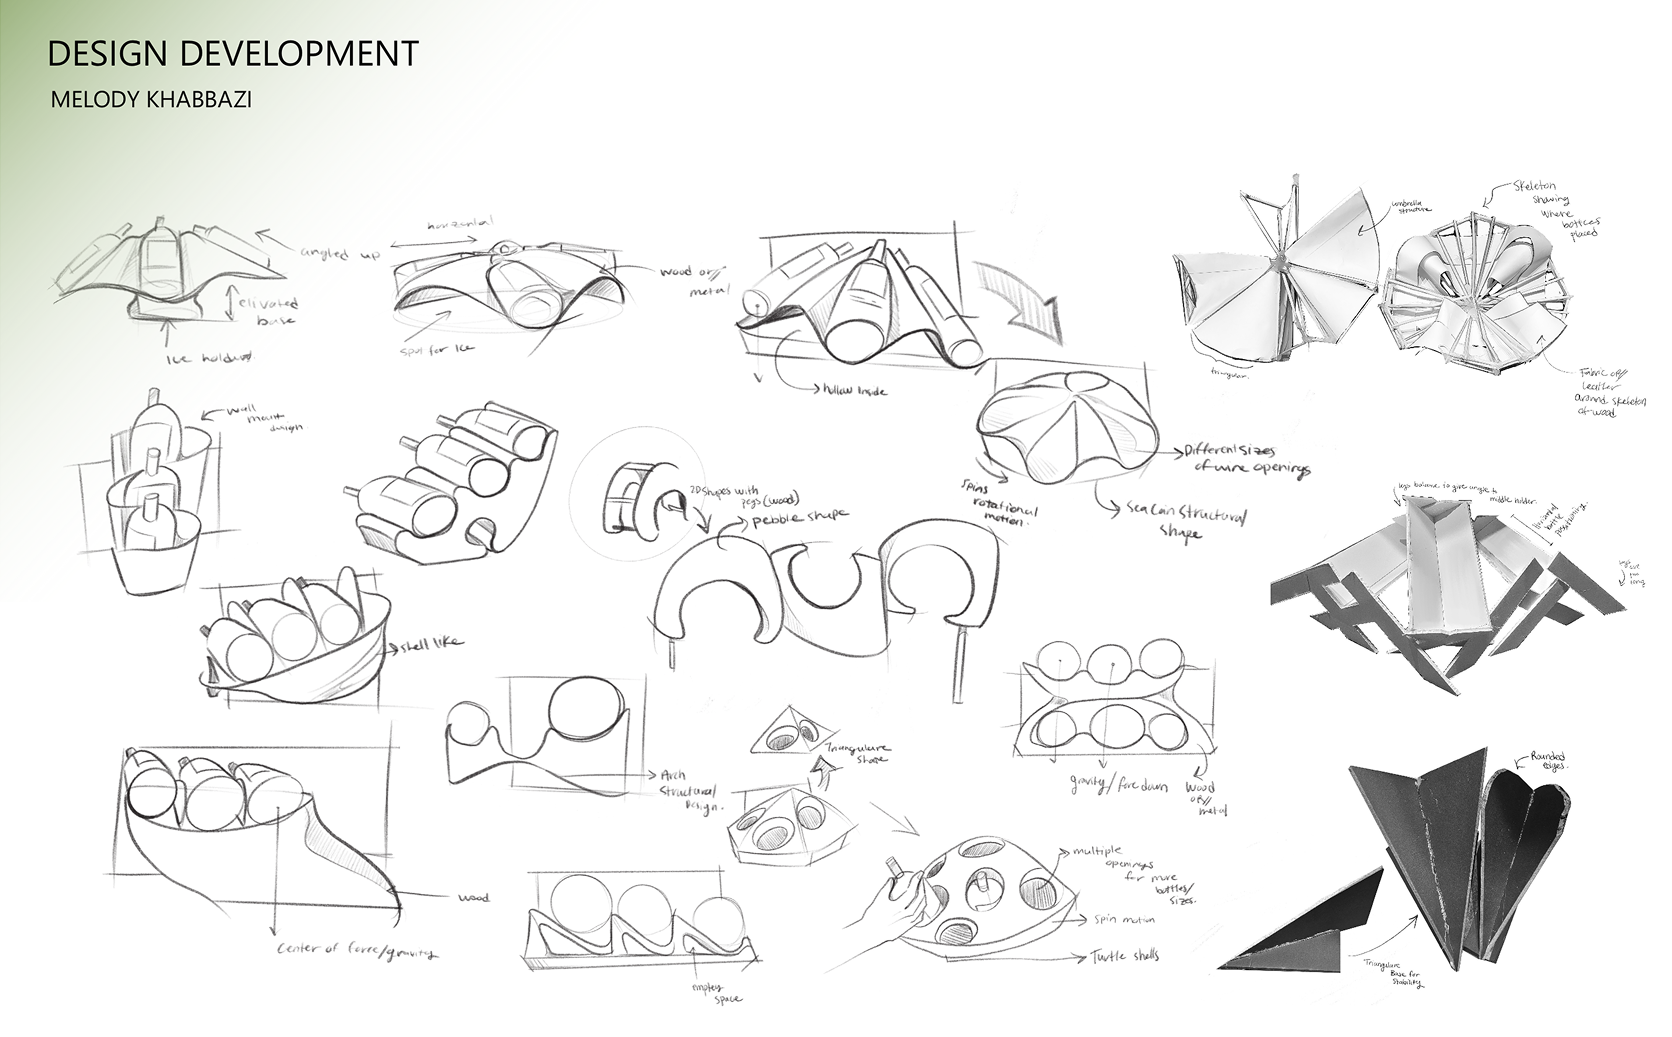 DESIGN DEVELOPMENT
MELODY KHABBAZI
angled up
elivated
base
Ice
horizontal
wood or//
metal
spot for Ice
hollow Inside
umbrella
structure
triangular.
Skeleton
showing
where
bottles
placed
Fabric or//
leather
around skeleton
of wood
wall
mount
design
2D shapes with
pegs (wood)
pebble shape
Spins
rotational
motion.
Different sizes
of wine openings
structural
shape
legs balance to give angle to
middle holder.
Horizontal
bottle
positioning.
legs
are
too
long
shell like
Arch
Structural
Design.
Triangulare
Shape
gravity/force down
wood
or//
metal
Rounded
edges.
wood
Center of force/gravity
empty
space
multiple
openings
for more
bottles/
sizes.
spin motion
Turtle shells
Triangulare
Base for
Stability